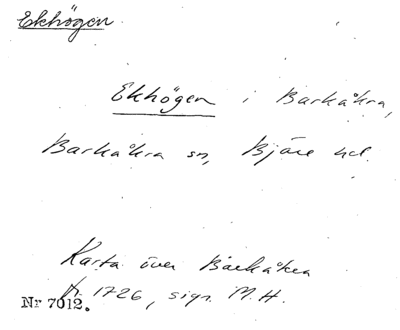 Ekhögen
Ekhögen i Barkåkra,
Barkåkra sn, Bjäre hd.
Karta över Barkåkra
fr. 1726, sign. M. H.
Nr 7012.